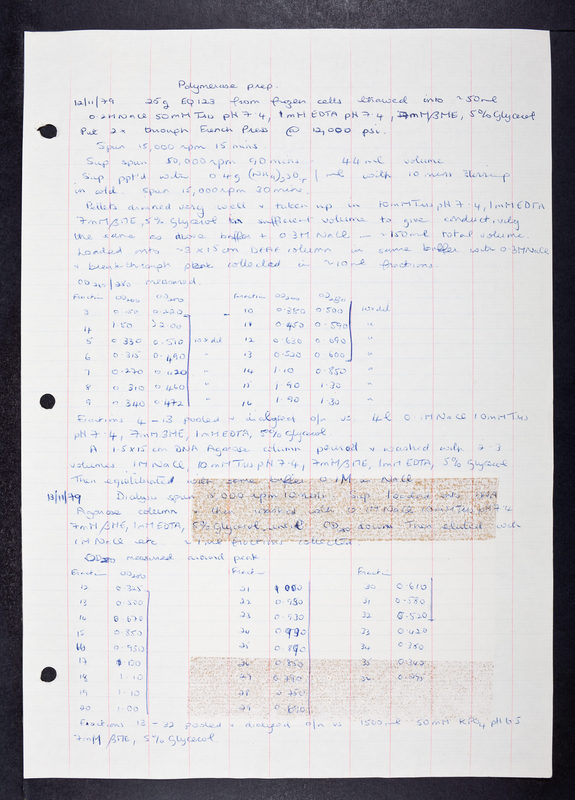 Polymerase prep.
12/11/79 25g EQ123 from frozen cells thawed into ~50ml
0.2M NaCl 50mM Tris pH 7.4, 1mM EDTA pH 7.4, 7mM βME, 5% Glycerol
Put 2x through French Press @ 12,000 psi.
Spun 15,000 rpm 15 mins
Sup spun 50,000 rpm 90 mins - 44 ml volume
Sup ppt'd with 0.4g (NH4)2SO4 / ml with 10 mins stirring
in cold. Spun 15,000 rpm 30 mins.
Pellets drained very well & taken up in 10mM Tris pH 7.4, 1mM EDTA
7mM βME, 5% Glycerol in sufficient volume to give conductivity
the same as above buffer + 0.3M NaCl - ~150ml total volume.
Loaded onto ~3 x 15cm DEAE column in same buffer with 0.3M NaCl
& breakthrough peak collected in ~10ml fractions.
OD 260/280 measured.
Fraction OD260 OD280 Fraction OD260 OD280
3 0.150 0.220 10 0.380 0.500 10x dil
4 1.50 >2.00 11 0.450 0.590 "
5 0.330 0.510 10x dil 12 0.630 0.690 "
6 0.315 0.490 " 13 0.520 0.600 "
7 0.270 0.420 " 14 1.10 0.850 "
8 0.310 0.460 " 15 1.90 1.30 "
9 0.340 0.472 " 16 1.90 1.30 "
Fractions 4 - 13 pooled & dialysed o/n vs. 4l 0.1M NaCl 10mM Tris
pH 7.4, 7mM βME, 1mM EDTA, 5% Glycerol.
A 1.5x15 cm DNA Agarose column poured & washed with 2-3
volumes 1M NaCl, 10mM Tris pH 7.4, 7mM βME, 1mM EDTA, 5% Glycerol
Then equilibrated with same buffer 0.1M in NaCl
13/11/79 Dialysis spun 5,000 rpm 10 mins. Sup loaded onto DNA
Agarose column & then washed with 0.1M NaCl 10mM Tris pH 7.4
7mM βME, 1mM EDTA, 5% Glycerol until OD280 down. Then eluted with
1M NaCl etc. fractions collected
OD280 measured around peak
Fraction OD280 Fraction Fraction
12 0.325 21 1.000 30 0.610
13 0.500 22 0.980 31 0.580
14 0.670 23 0.930 32 0.520
15 0.850 24 0.990 33 0.420
16 0.950 25 0.890 34 0.380
17 1.00 26 0.850 35 0.340
18 1.10 27 0.790 36 0.295
19 1.10 28 0.750
20 1.00 29 0.690
Fractions 13 - 32 pooled & dialysed o/n vs 1500ml 50mM KPO4 pH 6.5
7mM βME, 5% Glycerol